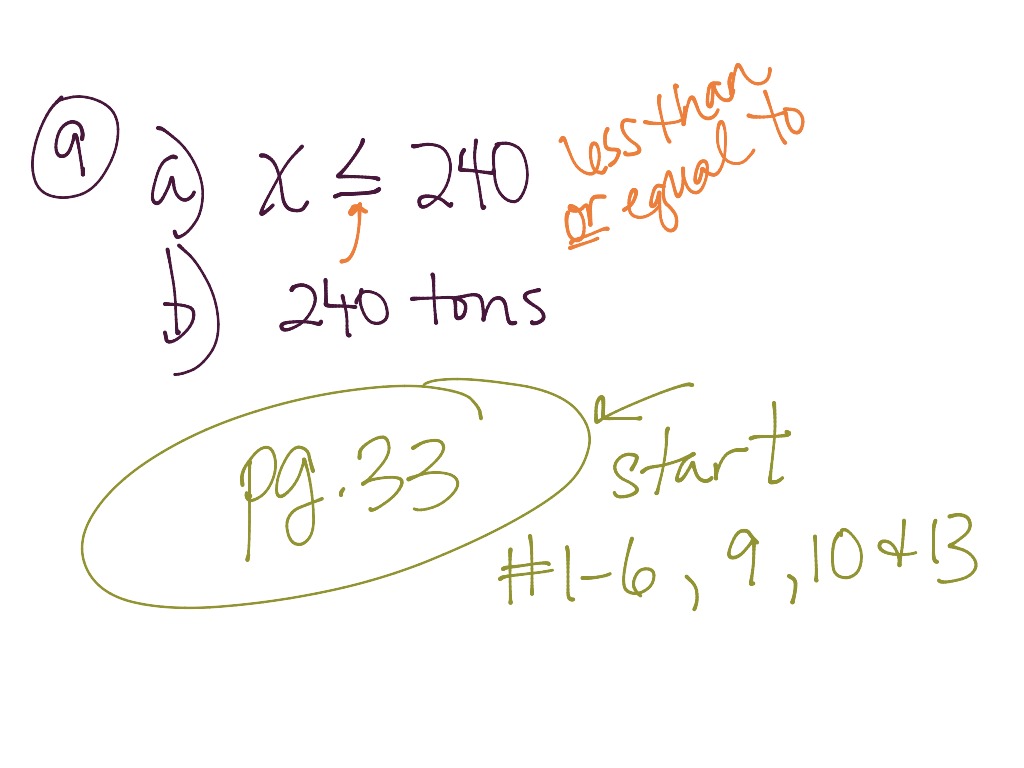 9 a) x ≤ 240
less than
or equal to
b) 240 tons
pg. 33
start
#1-6, 9, 10 & 13